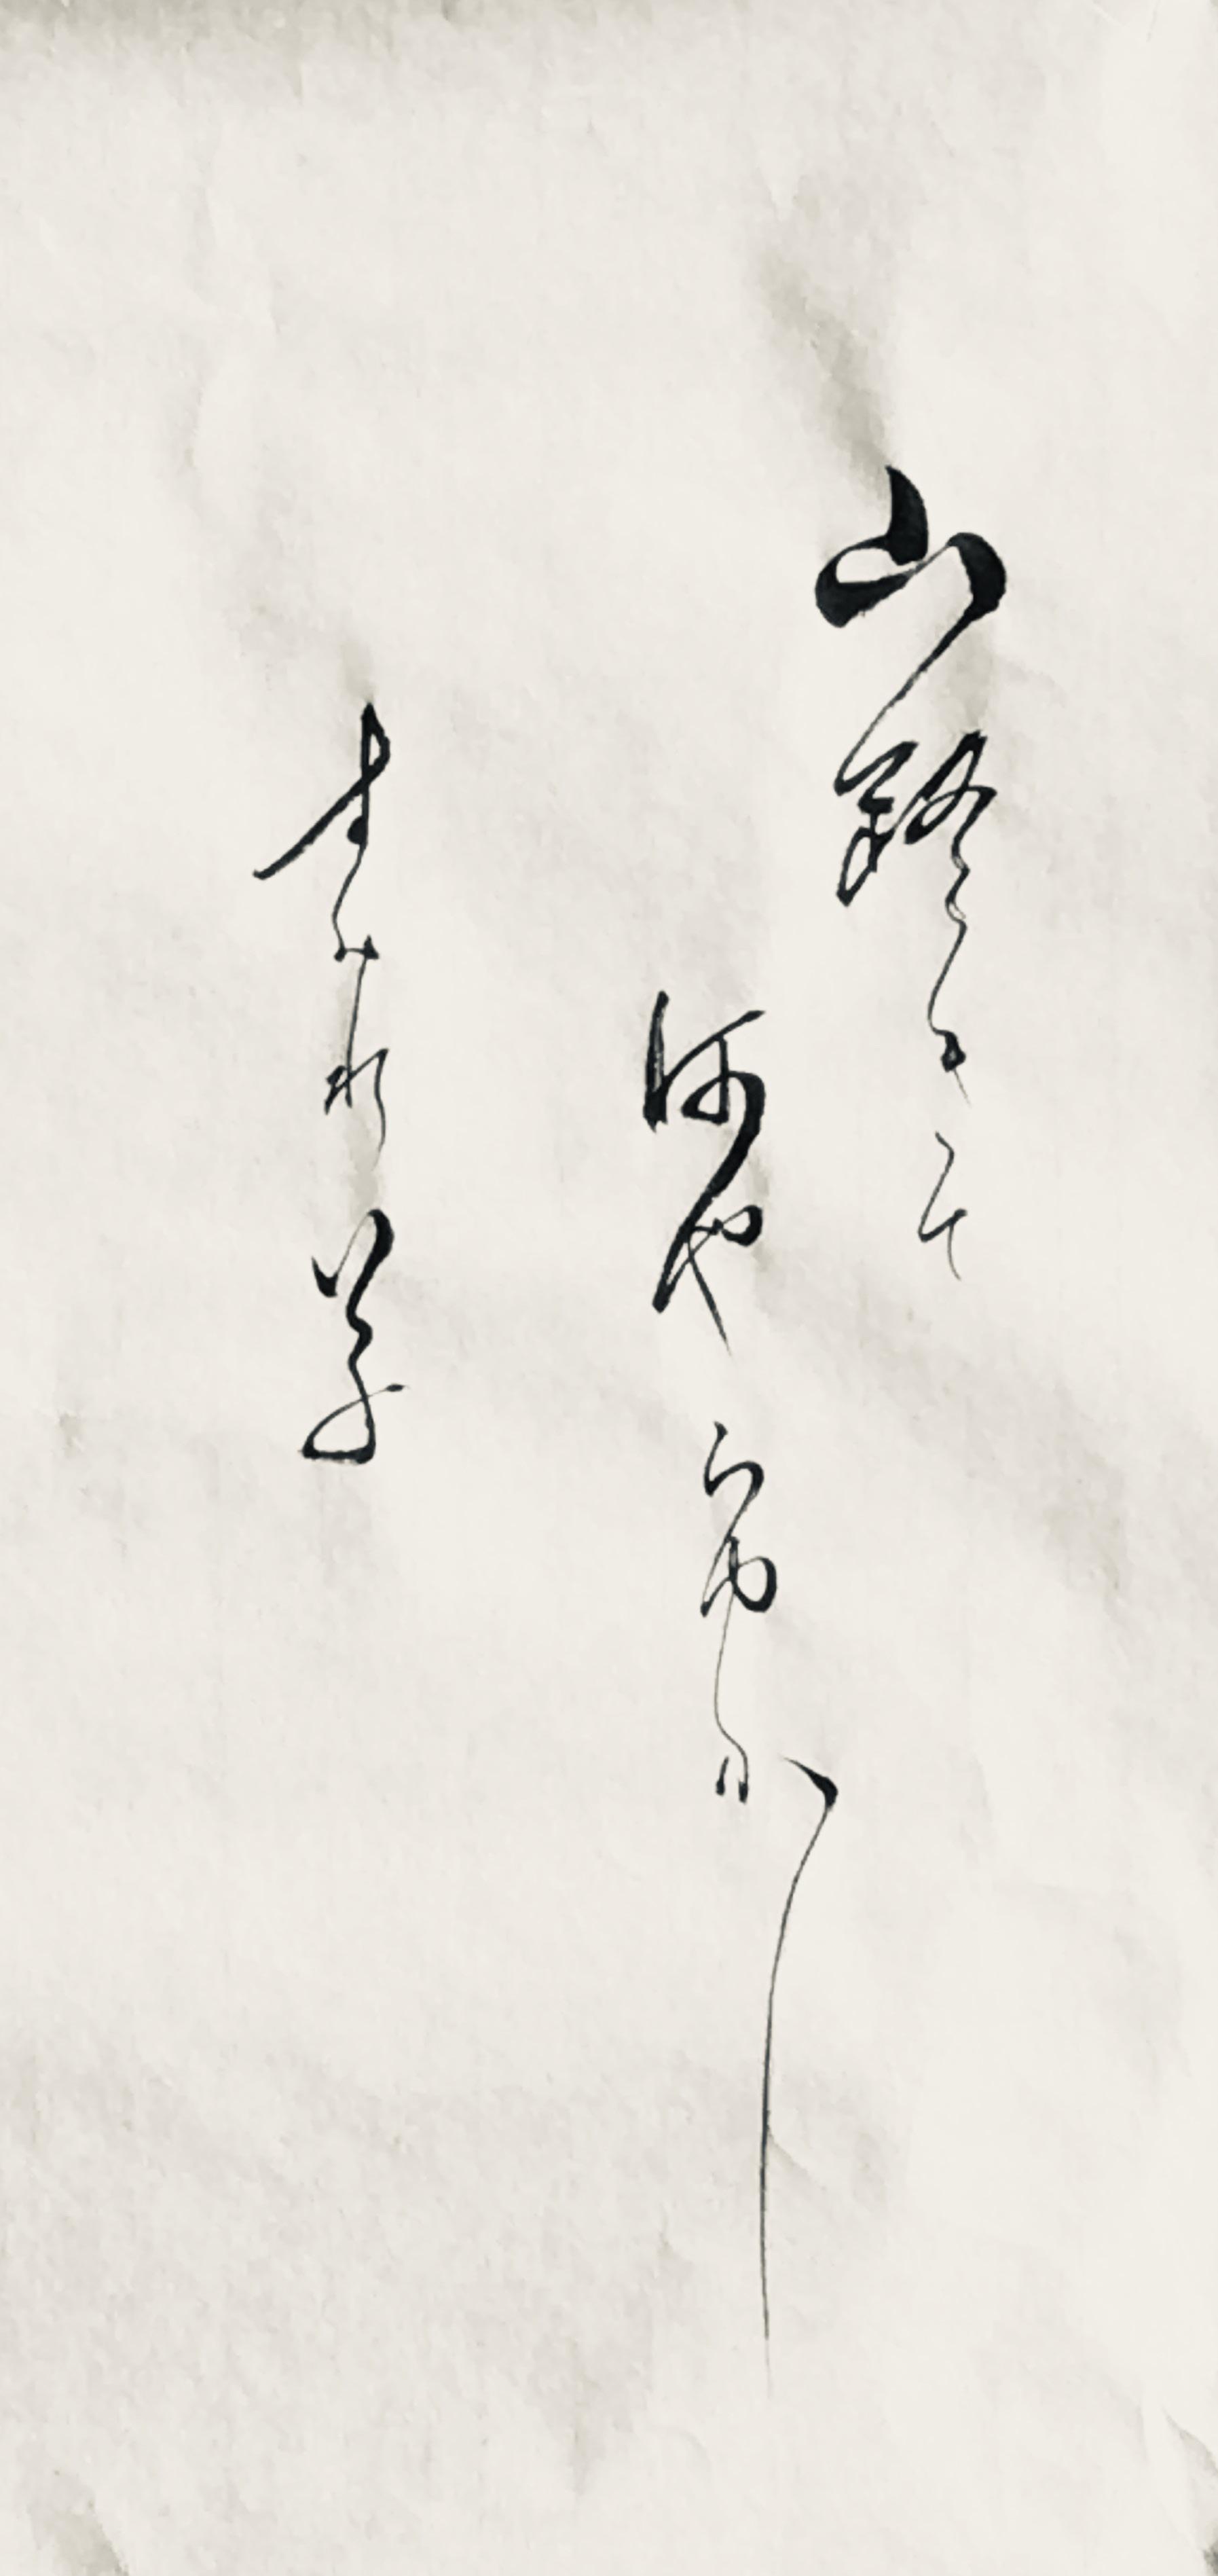 山路きて
何やらゆかし
すみれ草